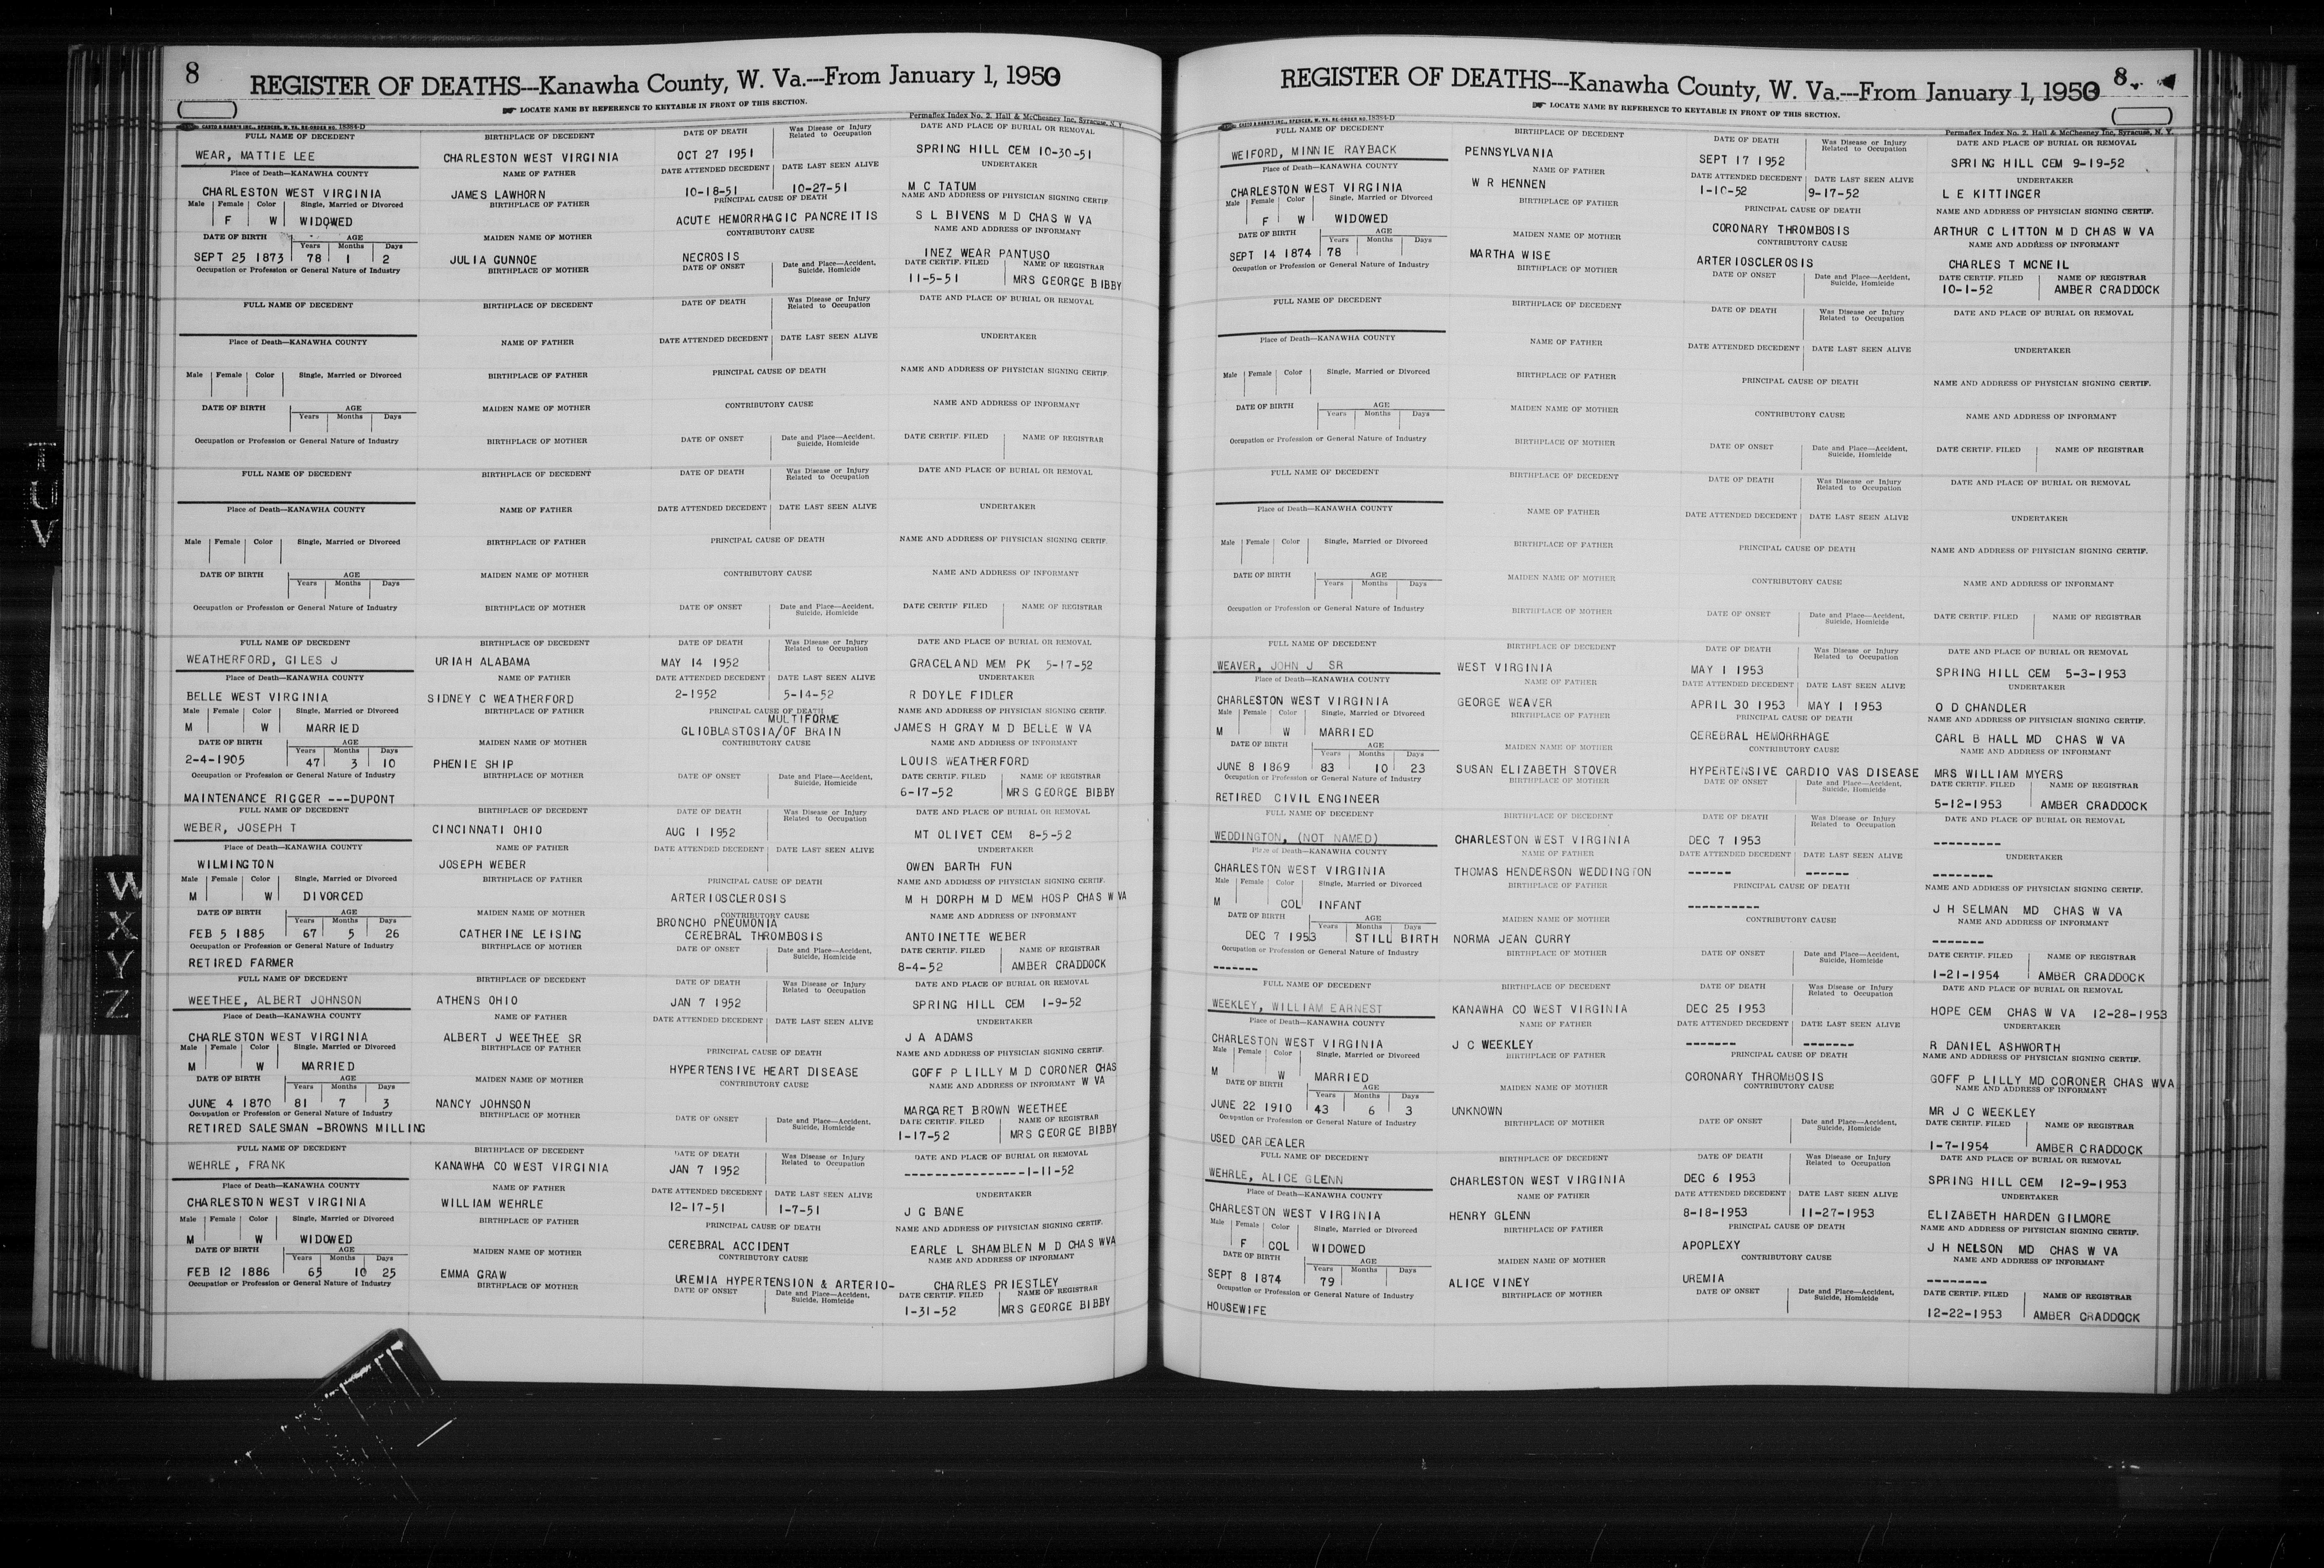 8
REGISTER OF DEATHS---Kanawha County, W. Va.---From January 1, 1950
LOCATE NAME BY REFERENCE TO KEYTABLE IN FRONT OF THIS SECTION.
CASTO & HARRIS INC., SPENCER, W. VA. RE-ORDER NO. 18384-D
Permaflex Index No. 2. Hall & McChesney Inc, Syracuse, N. Y.
FULL NAME OF DECEDENT BIRTHPLACE OF DECEDENT DATE OF DEATH Was Disease or Injury Related to Occupation DATE AND PLACE OF BURIAL OR REMOVAL
WEAR, MATTIE LEE CHARLESTON WEST VIRGINIA OCT 27 1951 SPRING HILL CEM 10-30-51
Place of Death—KANAWHA COUNTY NAME OF FATHER DATE ATTENDED DECEDENT DATE LAST SEEN ALIVE UNDERTAKER
CHARLESTON WEST VIRGINIA JAMES LAWHORN 10-18-51 10-27-51 M C TATUM
Male Female Color Single, Married or Divorced BIRTHPLACE OF FATHER PRINCIPAL CAUSE OF DEATH NAME AND ADDRESS OF PHYSICIAN SIGNING CERTIF.
F W WIDOWED ACUTE HEMORRHAGIC PANCREITIS S L BIVENS M D CHAS W VA
DATE OF BIRTH AGE Years Months Days MAIDEN NAME OF MOTHER CONTRIBUTORY CAUSE NAME AND ADDRESS OF INFORMANT
SEPT 25 1873 78 1 2 JULIA GUNNOE NECROSIS INEZ WEAR PANTUSO
Occupation or Profession or General Nature of Industry BIRTHPLACE OF MOTHER DATE OF ONSET Date and Place—Accident, Suicide, Homicide DATE CERTIF. FILED NAME OF REGISTRAR
11-5-51 MRS GEORGE BIBBY
FULL NAME OF DECEDENT BIRTHPLACE OF DECEDENT DATE OF DEATH Was Disease or Injury Related to Occupation DATE AND PLACE OF BURIAL OR REMOVAL
Place of Death—KANAWHA COUNTY NAME OF FATHER DATE ATTENDED DECEDENT DATE LAST SEEN ALIVE UNDERTAKER
Male Female Color Single, Married or Divorced BIRTHPLACE OF FATHER PRINCIPAL CAUSE OF DEATH NAME AND ADDRESS OF PHYSICIAN SIGNING CERTIF.
DATE OF BIRTH AGE Years Months Days MAIDEN NAME OF MOTHER CONTRIBUTORY CAUSE NAME AND ADDRESS OF INFORMANT
Occupation or Profession or General Nature of Industry BIRTHPLACE OF MOTHER DATE OF ONSET Date and Place—Accident, Suicide, Homicide DATE CERTIF. FILED NAME OF REGISTRAR
FULL NAME OF DECEDENT BIRTHPLACE OF DECEDENT DATE OF DEATH Was Disease or Injury Related to Occupation DATE AND PLACE OF BURIAL OR REMOVAL
Place of Death—KANAWHA COUNTY NAME OF FATHER DATE ATTENDED DECEDENT DATE LAST SEEN ALIVE UNDERTAKER
Male Female Color Single, Married or Divorced BIRTHPLACE OF FATHER PRINCIPAL CAUSE OF DEATH NAME AND ADDRESS OF PHYSICIAN SIGNING CERTIF.
DATE OF BIRTH AGE Years Months Days MAIDEN NAME OF MOTHER CONTRIBUTORY CAUSE NAME AND ADDRESS OF INFORMANT
Occupation or Profession or General Nature of Industry BIRTHPLACE OF MOTHER DATE OF ONSET Date and Place—Accident, Suicide, Homicide DATE CERTIF FILED NAME OF REGISTRAR
FULL NAME OF DECEDENT BIRTHPLACE OF DECEDENT DATE OF DEATH Was Disease or Injury Related to Occupation DATE AND PLACE OF BURIAL OR REMOVAL
WEATHERFORD, GILES J URIAH ALABAMA MAY 14 1952 GRACELAND MEM PK 5-17-52
Place of Death—KANAWHA COUNTY NAME OF FATHER DATE ATTENDED DECEDENT DATE LAST SEEN ALIVE UNDERTAKER
BELLE WEST VIRGINIA SIDNEY C WEATHERFORD 2-1952 5-14-52 R DOYLE FIDLER
Male Female Color Single, Married or Divorced BIRTHPLACE OF FATHER PRINCIPAL CAUSE OF DEATH NAME AND ADDRESS OF PHYSICIAN SIGNING CERTIF.
MULTIFORME
M W MARRIED GLIOBLASTOSIA/OF BRAIN JAMES H GRAY M D BELLE W VA
DATE OF BIRTH AGE Years Months Days MAIDEN NAME OF MOTHER CONTRIBUTORY CAUSE NAME AND ADDRESS OF INFORMANT
2-4-1905 47 3 10 PHENIE SHIP LOUIS WEATHERFORD
Occupation or Profession or General Nature of Industry BIRTHPLACE OF MOTHER DATE OF ONSET Date and Place—Accident, Suicide, Homicide DATE CERTIF. FILED NAME OF REGISTRAR
MAINTENANCE RIGGER ---DUPONT 6-17-52 MRS GEORGE BIBBY
FULL NAME OF DECEDENT BIRTHPLACE OF DECEDENT DATE OF DEATH Was Disease or Injury Related to Occupation DATE AND PLACE OF BURIAL OR REMOVAL
WEBER, JOSEPH T CINCINNATI OHIO AUG 1 1952 MT OLIVET CEM 8-5-52
Place of Death—KANAWHA COUNTY NAME OF FATHER DATE ATTENDED DECEDENT DATE LAST SEEN ALIVE UNDERTAKER
WILMINGTON JOSEPH WEBER OWEN BARTH FUN
Male Female Color Single, Married or Divorced BIRTHPLACE OF FATHER PRINCIPAL CAUSE OF DEATH NAME AND ADDRESS OF PHYSICIAN SIGNING CERTIF.
M W DIVORCED ARTERIOSCLEROSIS M H DORPH M D MEM HOSP CHAS W VA
DATE OF BIRTH AGE Years Months Days MAIDEN NAME OF MOTHER CONTRIBUTORY CAUSE NAME AND ADDRESS OF INFORMANT
BRONCHO PNEUMONIA
FEB 5 1885 67 5 26 CATHERINE LEISING CEREBRAL THROMBOSIS ANTOINETTE WEBER
Occupation or Profession or General Nature of Industry BIRTHPLACE OF MOTHER DATE OF ONSET Date and Place—Accident, Suicide, Homicide DATE CERTIF. FILED NAME OF REGISTRAR
RETIRED FARMER 8-4-52 AMBER CRADDOCK
FULL NAME OF DECEDENT BIRTHPLACE OF DECEDENT DATE OF DEATH Was Disease or Injury Related to Occupation DATE AND PLACE OF BURIAL OR REMOVAL
WEETHEE, ALBERT JOHNSON ATHENS OHIO JAN 7 1952 SPRING HILL CEM 1-9-52
Place of Death—KANAWHA COUNTY NAME OF FATHER DATE ATTENDED DECEDENT DATE LAST SEEN ALIVE UNDERTAKER
CHARLESTON WEST VIRGINIA ALBERT J WEETHEE SR J A ADAMS
Male Female Color Single, Married or Divorced BIRTHPLACE OF FATHER PRINCIPAL CAUSE OF DEATH NAME AND ADDRESS OF PHYSICIAN SIGNING CERTIF.
M W MARRIED HYPERTENSIVE HEART DISEASE GOFF P LILLY M D CORONER CHAS W VA
DATE OF BIRTH AGE Years Months Days MAIDEN NAME OF MOTHER CONTRIBUTORY CAUSE NAME AND ADDRESS OF INFORMANT
JUNE 4 1870 81 7 3 NANCY JOHNSON MARGARET BROWN WEETHEE
Occupation or Profession or General Nature of Industry BIRTHPLACE OF MOTHER DATE OF ONSET Date and Place—Accident, Suicide, Homicide DATE CERTIF. FILED NAME OF REGISTRAR
RETIRED SALESMAN -BROWNS MILLING 1-17-52 MRS GEORGE BIBBY
FULL NAME OF DECEDENT BIRTHPLACE OF DECEDENT DATE OF DEATH Was Disease or Injury Related to Occupation DATE AND PLACE OF BURIAL OR REMOVAL
WEHRLE, FRANK KANAWHA CO WEST VIRGINIA JAN 7 1952 ----------------1-11-52
Place of Death—KANAWHA COUNTY NAME OF FATHER DATE ATTENDED DECEDENT DATE LAST SEEN ALIVE UNDERTAKER
CHARLESTON WEST VIRGINIA WILLIAM WEHRLE 12-17-51 1-7-51 J G BANE
Male Female Color Single, Married or Divorced BIRTHPLACE OF FATHER PRINCIPAL CAUSE OF DEATH NAME AND ADDRESS OF PHYSICIAN SIGNING CERTIF.
M W WIDOWED CEREBRAL ACCIDENT EARLE L SHAMBLEN M D CHAS WVA
DATE OF BIRTH AGE Years Months Days MAIDEN NAME OF MOTHER CONTRIBUTORY CAUSE NAME AND ADDRESS OF INFORMANT
FEB 12 1886 65 10 25 EMMA GRAW UREMIA HYPERTENSION & ARTERIO- CHARLES PRIESTLEY
Occupation or Profession or General Nature of Industry BIRTHPLACE OF MOTHER DATE OF ONSET Date and Place—Accident, Suicide, Homicide DATE CERTIF. FILED NAME OF REGISTRAR
1-31-52 MRS GEORGE BIBBY
T
U
V
W
X
Y
Z
REGISTER OF DEATHS---Kanawha County, W. Va.---From January 1, 1953
8
LOCATE NAME BY REFERENCE TO KEYTABLE IN FRONT OF THIS SECTION.
CASTO & HARRIS INC., SPENCER, W. VA. RE-ORDER NO. 18384-D
Permaflex Index No. 2. Hall & McChesney Inc, Syracuse, N. Y.
FULL NAME OF DECEDENT BIRTHPLACE OF DECEDENT DATE OF DEATH Was Disease or Injury Related to Occupation DATE AND PLACE OF BURIAL OR REMOVAL
WEIFORD, MINNIE RAYBACK PENNSYLVANIA SEPT 17 1952 SPRING HILL CEM 9-19-52
Place of Death—KANAWHA COUNTY NAME OF FATHER DATE ATTENDED DECEDENT DATE LAST SEEN ALIVE UNDERTAKER
CHARLESTON WEST VIRGINIA W R HENNEN 1-10-52 9-17-52 L E KITTINGER
Male Female Color Single, Married or Divorced BIRTHPLACE OF FATHER PRINCIPAL CAUSE OF DEATH NAME AND ADDRESS OF PHYSICIAN SIGNING CERTIF.
F W WIDOWED CORONARY THROMBOSIS ARTHUR C LITTON M D CHAS W VA
DATE OF BIRTH AGE Years Months Days MAIDEN NAME OF MOTHER CONTRIBUTORY CAUSE NAME AND ADDRESS OF INFORMANT
SEPT 14 1874 78 MARTHA WISE ARTERIOSCLEROSIS CHARLES T MCNEIL
Occupation or Profession or General Nature of Industry BIRTHPLACE OF MOTHER DATE OF ONSET Date and Place—Accident, Suicide, Homicide DATE CERTIF. FILED NAME OF REGISTRAR
10-1-52 AMBER CRADDOCK
FULL NAME OF DECEDENT BIRTHPLACE OF DECEDENT DATE OF DEATH Was Disease or Injury Related to Occupation DATE AND PLACE OF BURIAL OR REMOVAL
Place of Death—KANAWHA COUNTY NAME OF FATHER DATE ATTENDED DECEDENT DATE LAST SEEN ALIVE UNDERTAKER
Male Female Color Single, Married or Divorced BIRTHPLACE OF FATHER PRINCIPAL CAUSE OF DEATH NAME AND ADDRESS OF PHYSICIAN SIGNING CERTIF.
DATE OF BIRTH AGE Years Months Days MAIDEN NAME OF MOTHER CONTRIBUTORY CAUSE NAME AND ADDRESS OF INFORMANT
Occupation or Profession or General Nature of Industry BIRTHPLACE OF MOTHER DATE OF ONSET Date and Place—Accident, Suicide, Homicide DATE CERTIF. FILED NAME OF REGISTRAR
FULL NAME OF DECEDENT BIRTHPLACE OF DECEDENT DATE OF DEATH Was Disease or Injury Related to Occupation DATE AND PLACE OF BURIAL OR REMOVAL
Place of Death—KANAWHA COUNTY NAME OF FATHER DATE ATTENDED DECEDENT DATE LAST SEEN ALIVE UNDERTAKER
Male Female Color Single, Married or Divorced BIRTHPLACE OF FATHER PRINCIPAL CAUSE OF DEATH NAME AND ADDRESS OF PHYSICIAN SIGNING CERTIF.
DATE OF BIRTH AGE Years Months Days MAIDEN NAME OF MOTHER CONTRIBUTORY CAUSE NAME AND ADDRESS OF INFORMANT
Occupation or Profession or General Nature of Industry BIRTHPLACE OF MOTHER DATE OF ONSET Date and Place—Accident, Suicide, Homicide DATE CERTIF. FILED NAME OF REGISTRAR
FULL NAME OF DECEDENT BIRTHPLACE OF DECEDENT DATE OF DEATH Was Disease or Injury Related to Occupation DATE AND PLACE OF BURIAL OR REMOVAL
WEAVER, JOHN J SR WEST VIRGINIA MAY 1 1953 SPRING HILL CEM 5-3-1953
Place of Death—KANAWHA COUNTY NAME OF FATHER DATE ATTENDED DECEDENT DATE LAST SEEN ALIVE UNDERTAKER
CHARLESTON WEST VIRGINIA GEORGE WEAVER APRIL 30 1953 MAY 1 1953 O D CHANDLER
Male Female Color Single, Married or Divorced BIRTHPLACE OF FATHER PRINCIPAL CAUSE OF DEATH NAME AND ADDRESS OF PHYSICIAN SIGNING CERTIF.
M W MARRIED CEREBRAL HEMORRHAGE CARL B HALL MD CHAS W VA
DATE OF BIRTH AGE Years Months Days MAIDEN NAME OF MOTHER CONTRIBUTORY CAUSE NAME AND ADDRESS OF INFORMANT
JUNE 8 1869 83 10 23 SUSAN ELIZABETH STOVER HYPERTENSIVE CARDIO VAS DISEASE MRS WILLIAM MYERS
Occupation or Profession or General Nature of Industry BIRTHPLACE OF MOTHER DATE OF ONSET Date and Place—Accident, Suicide, Homicide DATE CERTIF. FILED NAME OF REGISTRAR
RETIRED CIVIL ENGINEER 5-12-1953 AMBER CRADDOCK
FULL NAME OF DECEDENT BIRTHPLACE OF DECEDENT DATE OF DEATH Was Disease or Injury Related to Occupation DATE AND PLACE OF BURIAL OR REMOVAL
WEDDINGTON, (NOT NAMED) CHARLESTON WEST VIRGINIA DEC 7 1953 ---------
Place of Death—KANAWHA COUNTY NAME OF FATHER DATE ATTENDED DECEDENT DATE LAST SEEN ALIVE UNDERTAKER
CHARLESTON WEST VIRGINIA THOMAS HENDERSON WEDDINGTON ------ ------ --------
Male Female Color Single, Married or Divorced BIRTHPLACE OF FATHER PRINCIPAL CAUSE OF DEATH NAME AND ADDRESS OF PHYSICIAN SIGNING CERTIF.
M COL INFANT ---------- J H SELMAN MD CHAS W VA
DATE OF BIRTH AGE Years Months Days MAIDEN NAME OF MOTHER CONTRIBUTORY CAUSE NAME AND ADDRESS OF INFORMANT
DEC 7 1953 STILL BIRTH NORMA JEAN CURRY -------
Occupation or Profession or General Nature of Industry BIRTHPLACE OF MOTHER DATE OF ONSET Date and Place—Accident, Suicide, Homicide DATE CERTIF. FILED NAME OF REGISTRAR
------- 1-21-1954 AMBER CRADDOCK
FULL NAME OF DECEDENT BIRTHPLACE OF DECEDENT DATE OF DEATH Was Disease or Injury Related to Occupation DATE AND PLACE OF BURIAL OR REMOVAL
WEEKLEY, WILLIAM EARNEST KANAWHA CO WEST VIRGINIA DEC 25 1953 HOPE CEM CHAS W VA 12-28-1953
Place of Death—KANAWHA COUNTY NAME OF FATHER DATE ATTENDED DECEDENT DATE LAST SEEN ALIVE UNDERTAKER
CHARLESTON WEST VIRGINIA J C WEEKLEY ------- ------- R DANIEL ASHWORTH
Male Female Color Single, Married or Divorced BIRTHPLACE OF FATHER PRINCIPAL CAUSE OF DEATH NAME AND ADDRESS OF PHYSICIAN SIGNING CERTIF.
M W MARRIED CORONARY THROMBOSIS GOFF P LILLY MD CORONER CHAS WVA
DATE OF BIRTH AGE Years Months Days MAIDEN NAME OF MOTHER CONTRIBUTORY CAUSE NAME AND ADDRESS OF INFORMANT
JUNE 22 1910 43 6 3 UNKNOWN MR J C WEEKLEY
Occupation or Profession or General Nature of Industry BIRTHPLACE OF MOTHER DATE OF ONSET Date and Place—Accident, Suicide, Homicide DATE CERTIF. FILED NAME OF REGISTRAR
USED CAR DEALER 1-7-1954 AMBER CRADDOCK
FULL NAME OF DECEDENT BIRTHPLACE OF DECEDENT DATE OF DEATH Was Disease or Injury Related to Occupation DATE AND PLACE OF BURIAL OR REMOVAL
WEHRLE, ALICE GLENN CHARLESTON WEST VIRGINIA DEC 6 1953 SPRING HILL CEM 12-9-1953
Place of Death—KANAWHA COUNTY NAME OF FATHER DATE ATTENDED DECEDENT DATE LAST SEEN ALIVE UNDERTAKER
CHARLESTON WEST VIRGINIA HENRY GLENN 8-18-1953 11-27-1953 ELIZABETH HARDEN GILMORE
Male Female Color Single, Married or Divorced BIRTHPLACE OF FATHER PRINCIPAL CAUSE OF DEATH NAME AND ADDRESS OF PHYSICIAN SIGNING CERTIF.
F COL WIDOWED APOPLEXY J H NELSON MD CHAS W VA
DATE OF BIRTH AGE Years Months Days MAIDEN NAME OF MOTHER CONTRIBUTORY CAUSE NAME AND ADDRESS OF INFORMANT
SEPT 8 1874 79 ALICE VINEY UREMIA --------
Occupation or Profession or General Nature of Industry BIRTHPLACE OF MOTHER DATE OF ONSET Date and Place—Accident, Suicide, Homicide DATE CERTIF. FILED NAME OF REGISTRAR
HOUSEWIFE 12-22-1953 AMBER CRADDOCK